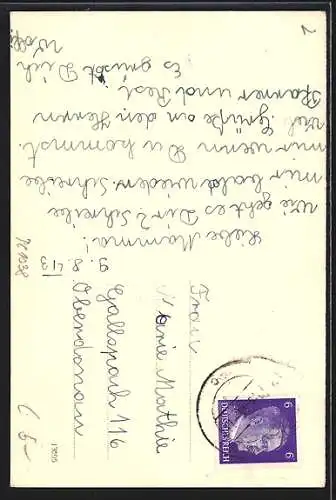 9. 8. 43
Liebe Mamma!
Wie geht es Dir? Schreibe
mir bald wieder. Schreibe
mir wenn Du kommst.
Viel Grüße an den Herrn
Pfarrer und Resi.
Es grüßt Dich
Frau
Marie Mathie
Gallspach 116
Oberdonau
DEUTSCHES REICH
6
6
13856